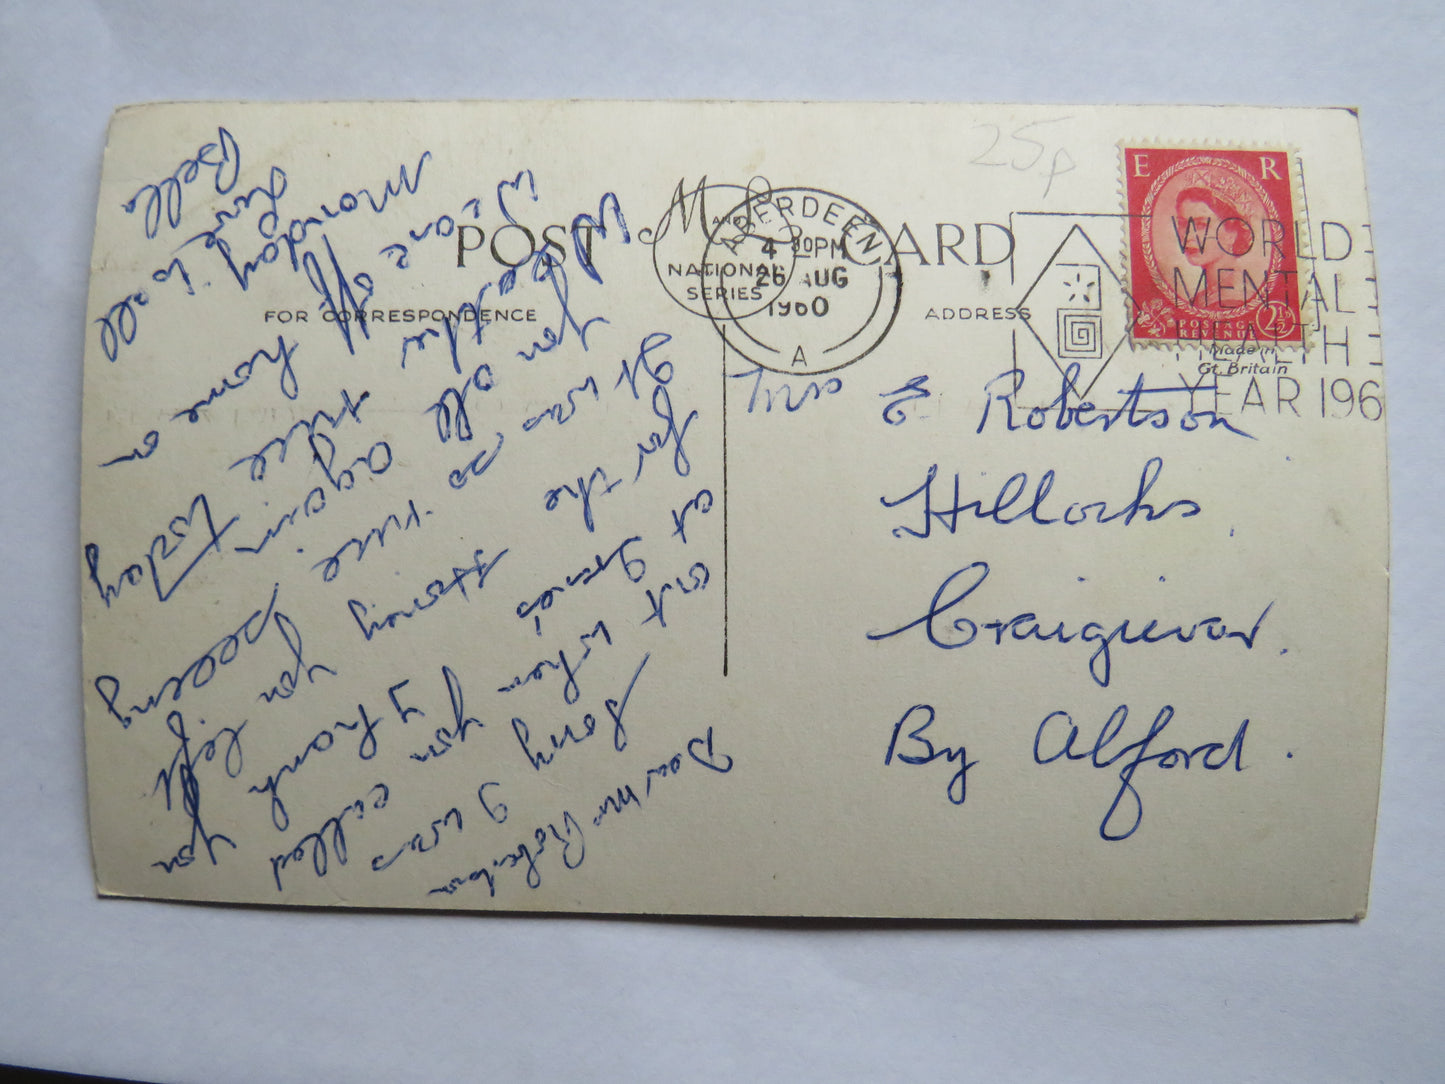 25p
E R
POST CARD
M AND L
NATIONAL SERIES
FOR CORRESPONDENCE
ADDRESS
ABERDEEN
4 30PM
26 AUG
1960
A
WORLD
MENTAL
HEALTH
YEAR 196
POSTAGE REVENUE 2½D
Made in
Gt. Britain
Mrs E Robertson
Hillocks
Craigievar.
By Alford.
Dear Mrs Robertson
Sorry I was
out when you called
at
for the Honey you left
It was so nice seeing
you all again today
off home on
Monday
Love to all
Bella